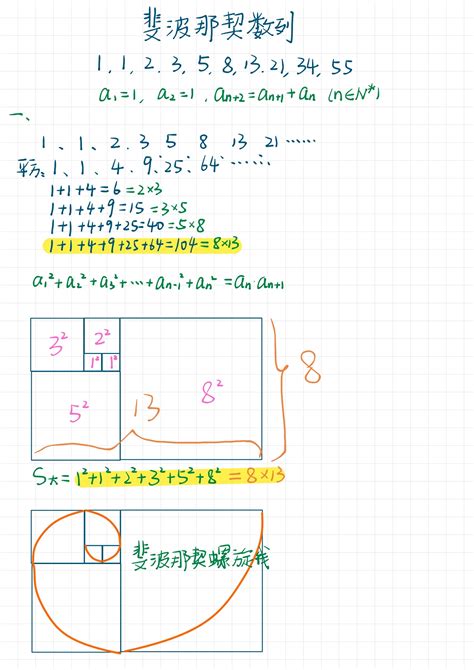 斐波那契数列
1, 1, 2. 3, 5, 8, 13. 21, 34, 55
a₁=1, a₂=1, aₙ₊₂=aₙ₊₁+aₙ (n∈N*)
一、
1、1、2.3 5 8 13 21……
平方：1、1、4.9.25.64……
1+1+4=6=2×3
1+1+4+9=15=3×5
1+1+4+9+25=40=5×8
1+1+4+9+25+64=104=8×13
a₁²+a₂²+a₃²+…+aₙ₋₁²+aₙ²=aₙ·aₙ₊₁
3² 2²
1² 1²
8
5² 13 8²
S大=1²+1²+2²+3²+5²+8²=8×13
斐波那契螺旋线